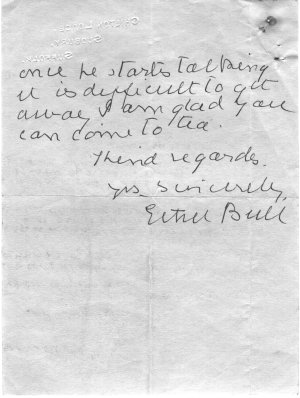 once he starts talking
it is difficult to get
away. I am glad you
can come to tea.
Kind regards.
yrs sincerely,
Ethel Bull